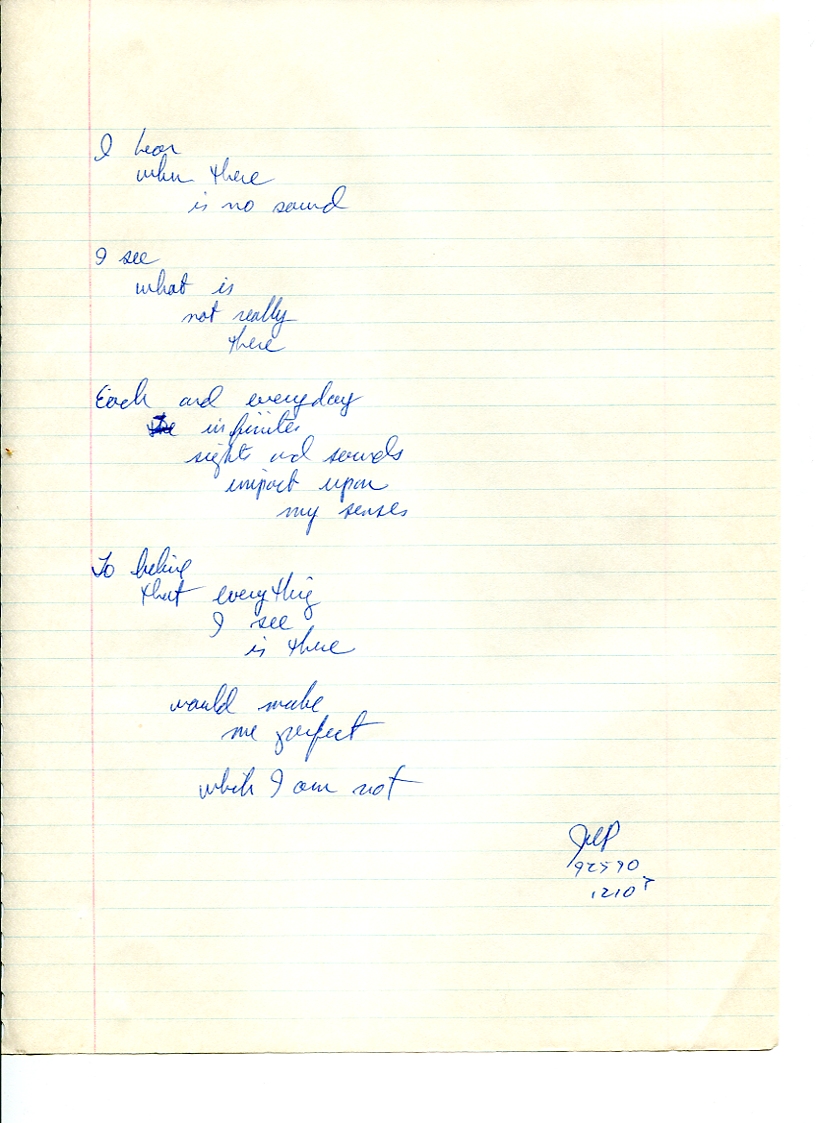 I hear
when there
is no sound
I see
what is
not really
there
Each and everyday
infinite
sights and sounds
impact upon
my senses
To believe
that everything
I see
is there
would make
me perfect
which I am not
92590
1210